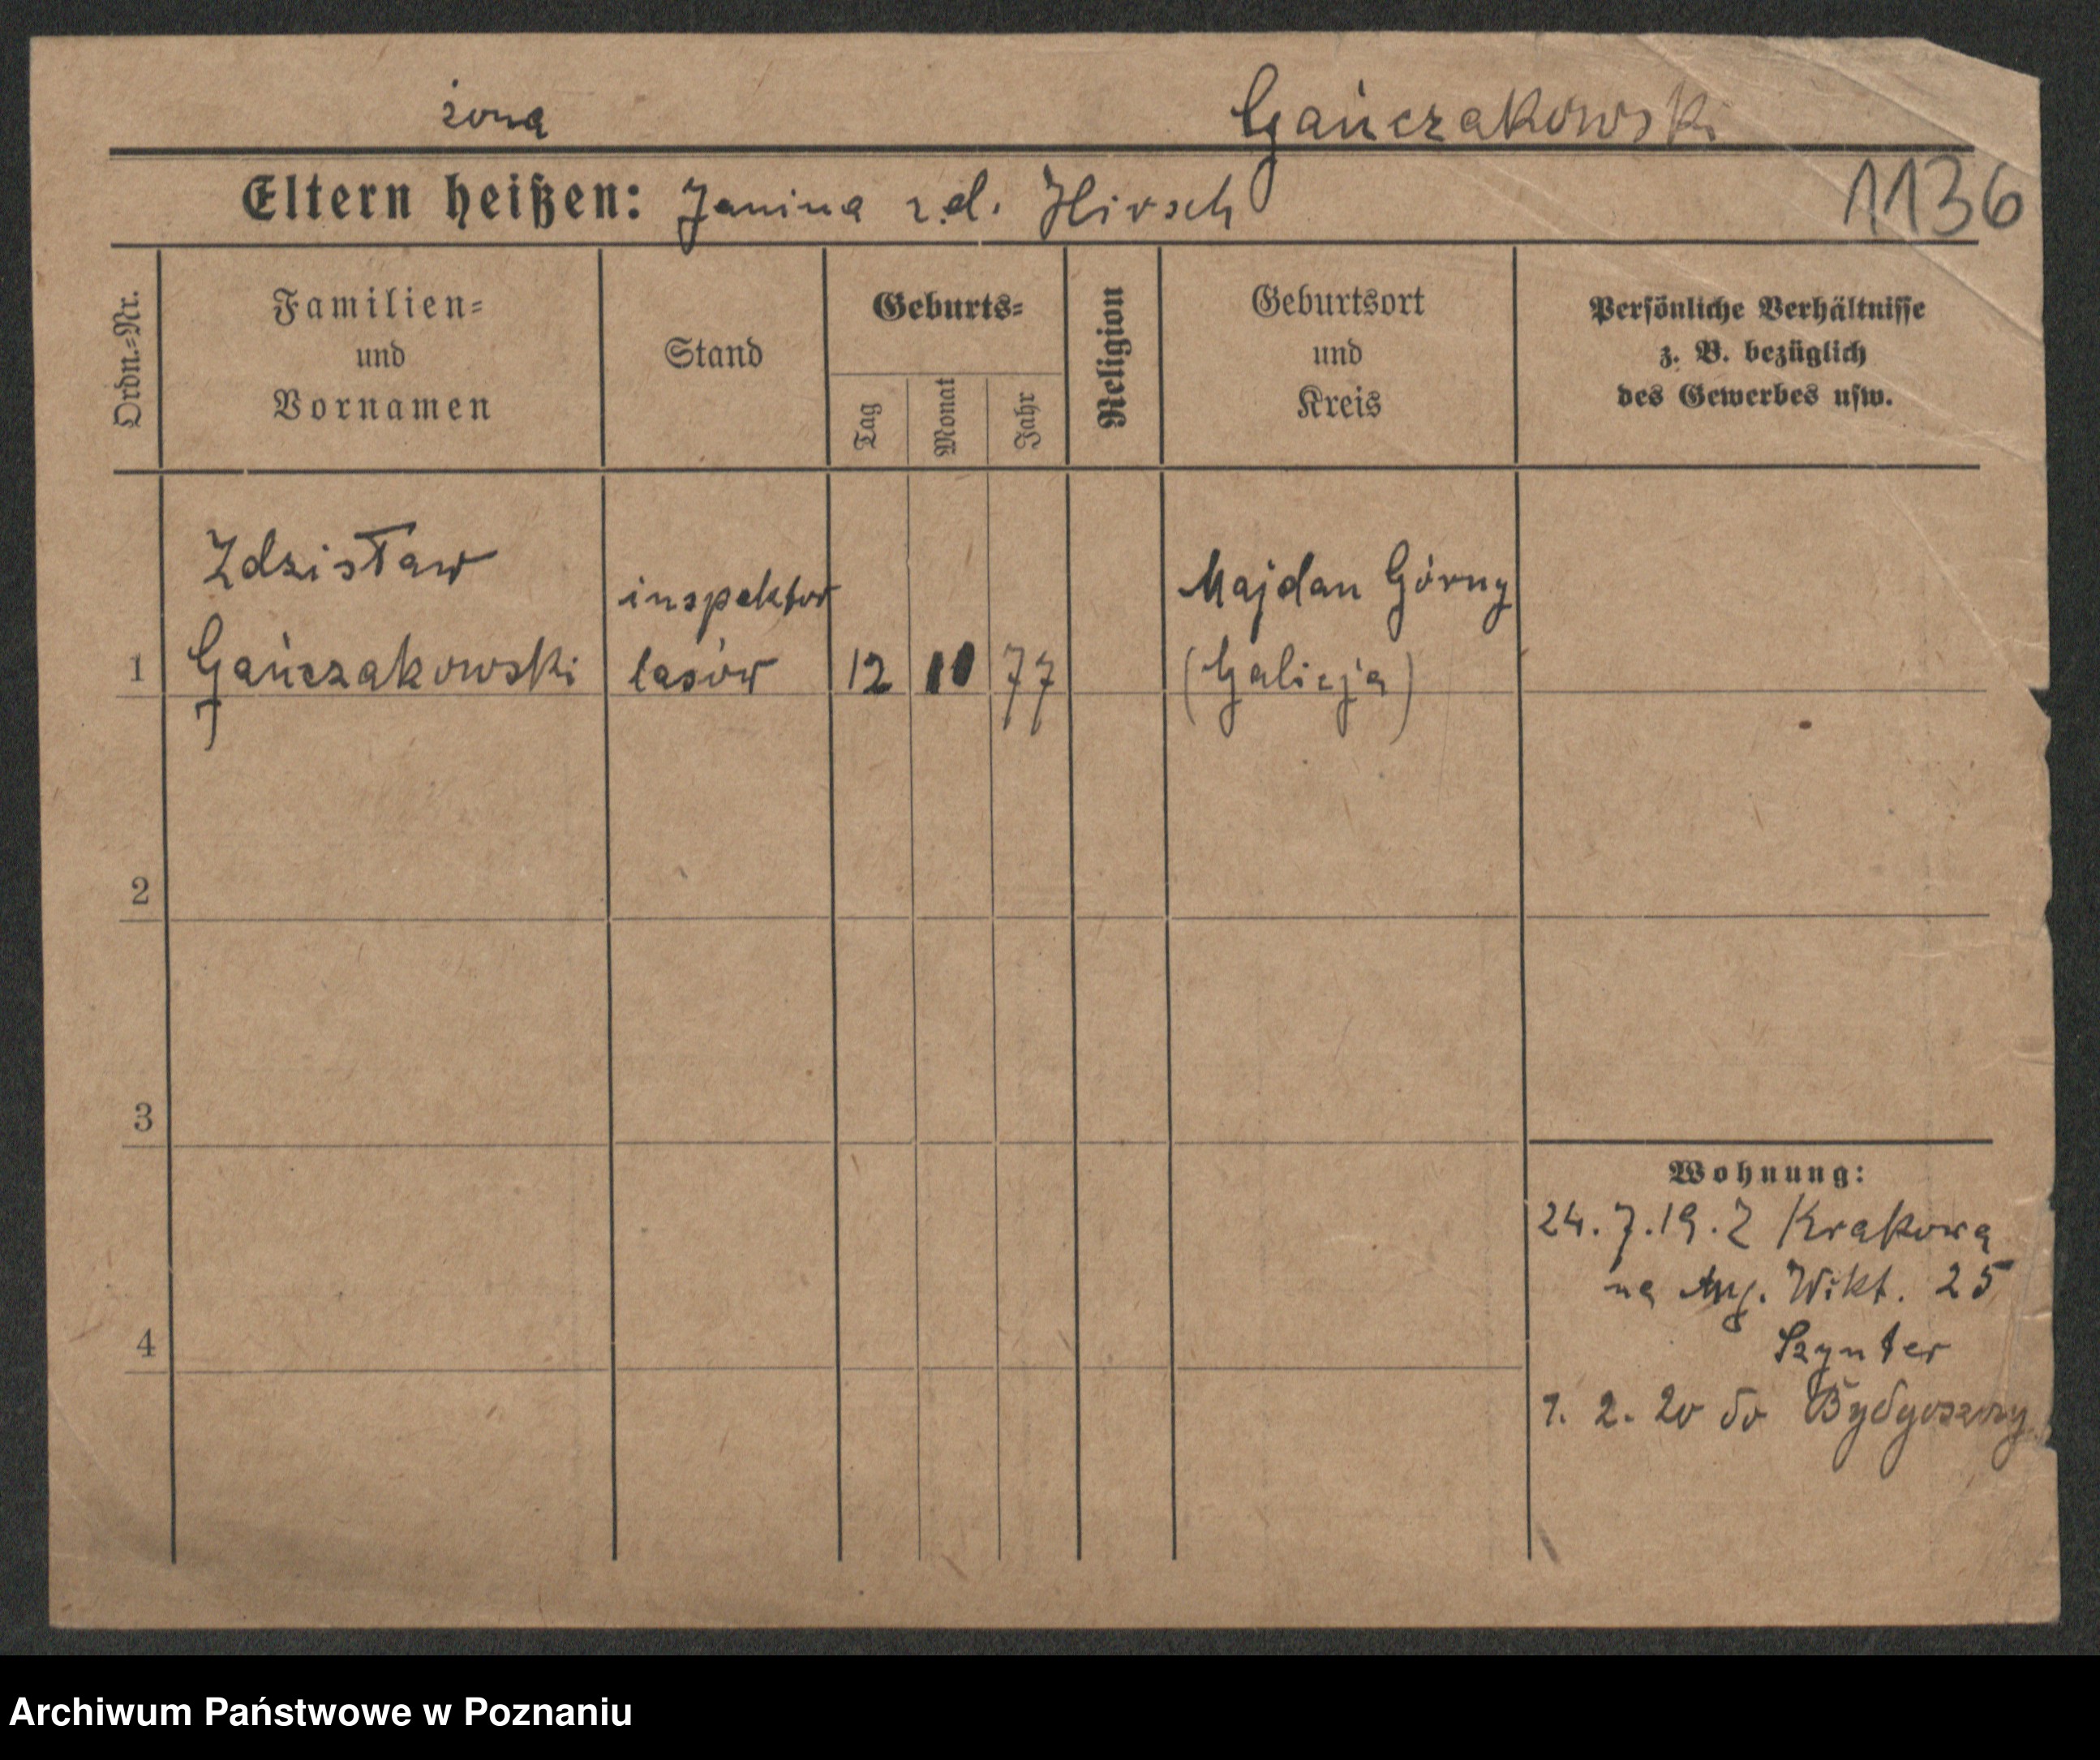 żona Gańczakowski
Eltern heißen: Janina z.d. Hirsch 1136
Ordn.=Nr.
Familien=
und
Vornamen
Stand
Geburts=
Tag
Monat
Jahr
Religion
Geburtsort
und
Kreis
Persönliche Verhältnisse
z. B. bezüglich
des Gewerbes usw.
Zdzisław
inspektor
Majdan Górny
1 Gańczakowski lasów 12 10 77 (Galicja)
2
3
4
Wohnung:
24.7.19. Z Krakowa
na Aug. Wikt. 25
Szynter
1. 2. 20 do Bydgoszczy
Archiwum Państwowe w Poznaniu